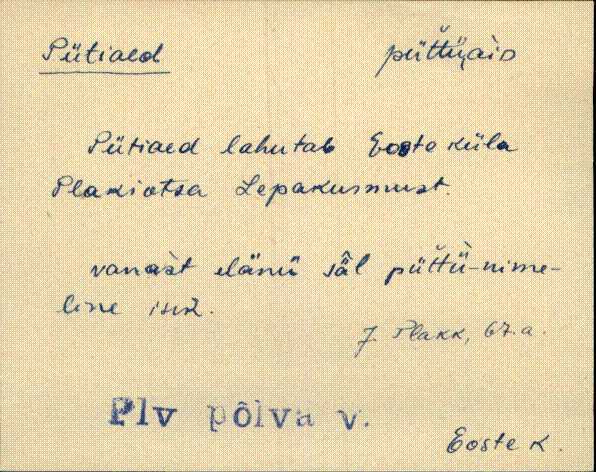 Pütiaed püťťüaiɒ
Pütiaed lahutab Eoste küla
Plakiotsa Lepakusmust.
vanast elänü säl püťťü-nime-
line isik.
J. Plakk, 67.a.
Plv põlva v.
Eoste k.